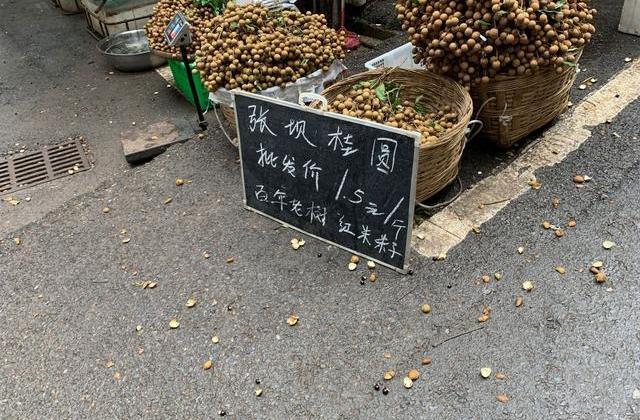 张坝桂圆
批发价1.5元/斤
百年老树红朱籽